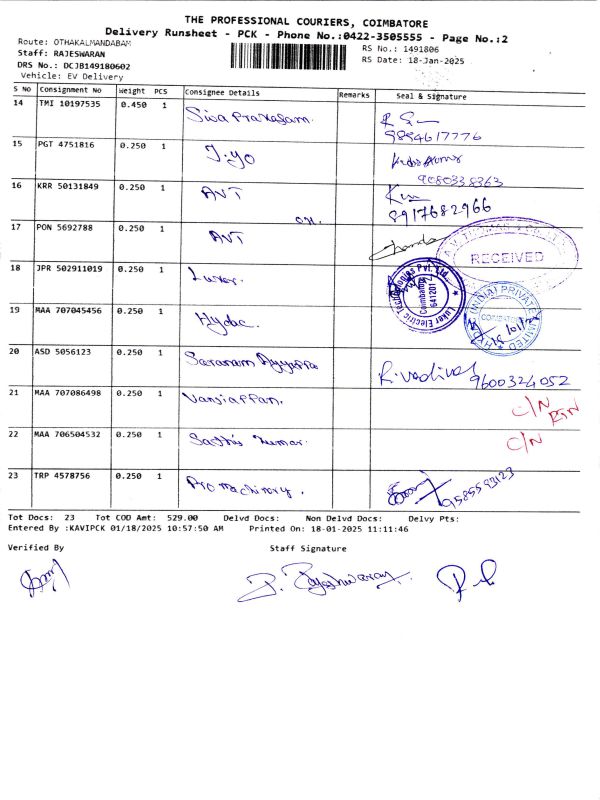 THE PROFESSIONAL COURIERS, COIMBATORE
Delivery Runsheet - PCK - Phone No.:0422-3505555 - Page No.:2
Route: OTHAKALMANDABAM
RS No.: 1491806
Staff: RAJESWARAN
RS Date: 18-Jan-2025
DRS No.: DCJB149180602
Vehicle: EV Delivery
S No Consignment No Weight PCS Consignee Details Remarks Seal & Signature
14 TMI 10197535 0.450 1 Siva Prakasam
9894617776
15 PGT 4751816 0.250 1
9080338363
16 KRR 50131849 0.250 1 AVT
8917682966
17 PON 5692788 0.250 1 AVT
RECEIVED
18 JPR 502911019 0.250 1 Luker
Luker Electric Technologies Pvt. Ltd.
Coimbatore
641201
19 MAA 707045456 0.250 1 Hydac
(INDIA) PRIVATE LIMITED
20 ASD 5056123 0.250 1 Saranam Ayyappa
R. Vadivel 9600324052
21 MAA 707086498 0.250 1 Vanjiappan.
C/N RTN
22 MAA 706504532 0.250 1 Sathis kumar.
C/N
23 TRP 4578756 0.250 1 Pro machinery.
9585593123
Tot Docs: 23 Tot COD Amt: 529.00 Delvd Docs: Non Delvd Docs: Delvy Pts:
Entered By :KAVIPCK 01/18/2025 10:57:50 AM Printed On: 18-01-2025 11:11:46
Verified By Staff Signature